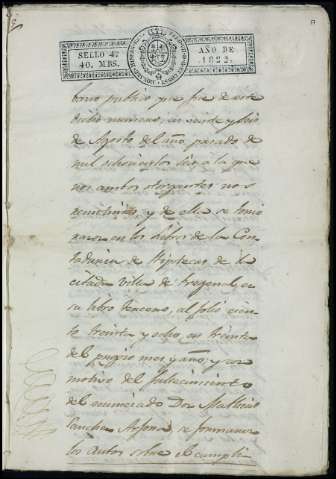 SELLO 4º
40. MRS.
AÑO DE
1822.
bano publico que fue de este
dicho numero, en veinte y seis
de Agosto del año pasado de
mil ochocientos seis, a la que
nos ambos otorgantes nos
remitimos, y de ella se tomó
razon en los libros de la Con-
taduria de Hipotecas de la
citada villa de Fregenal, en
su libro tercero, al folio cien-
to treinta y ocho, en treinta
del propio mes y año; y con
motivo del fallecimiento
del enunciado Dn
Sanchez Arjona se formaron
los autos sobre el cumpli